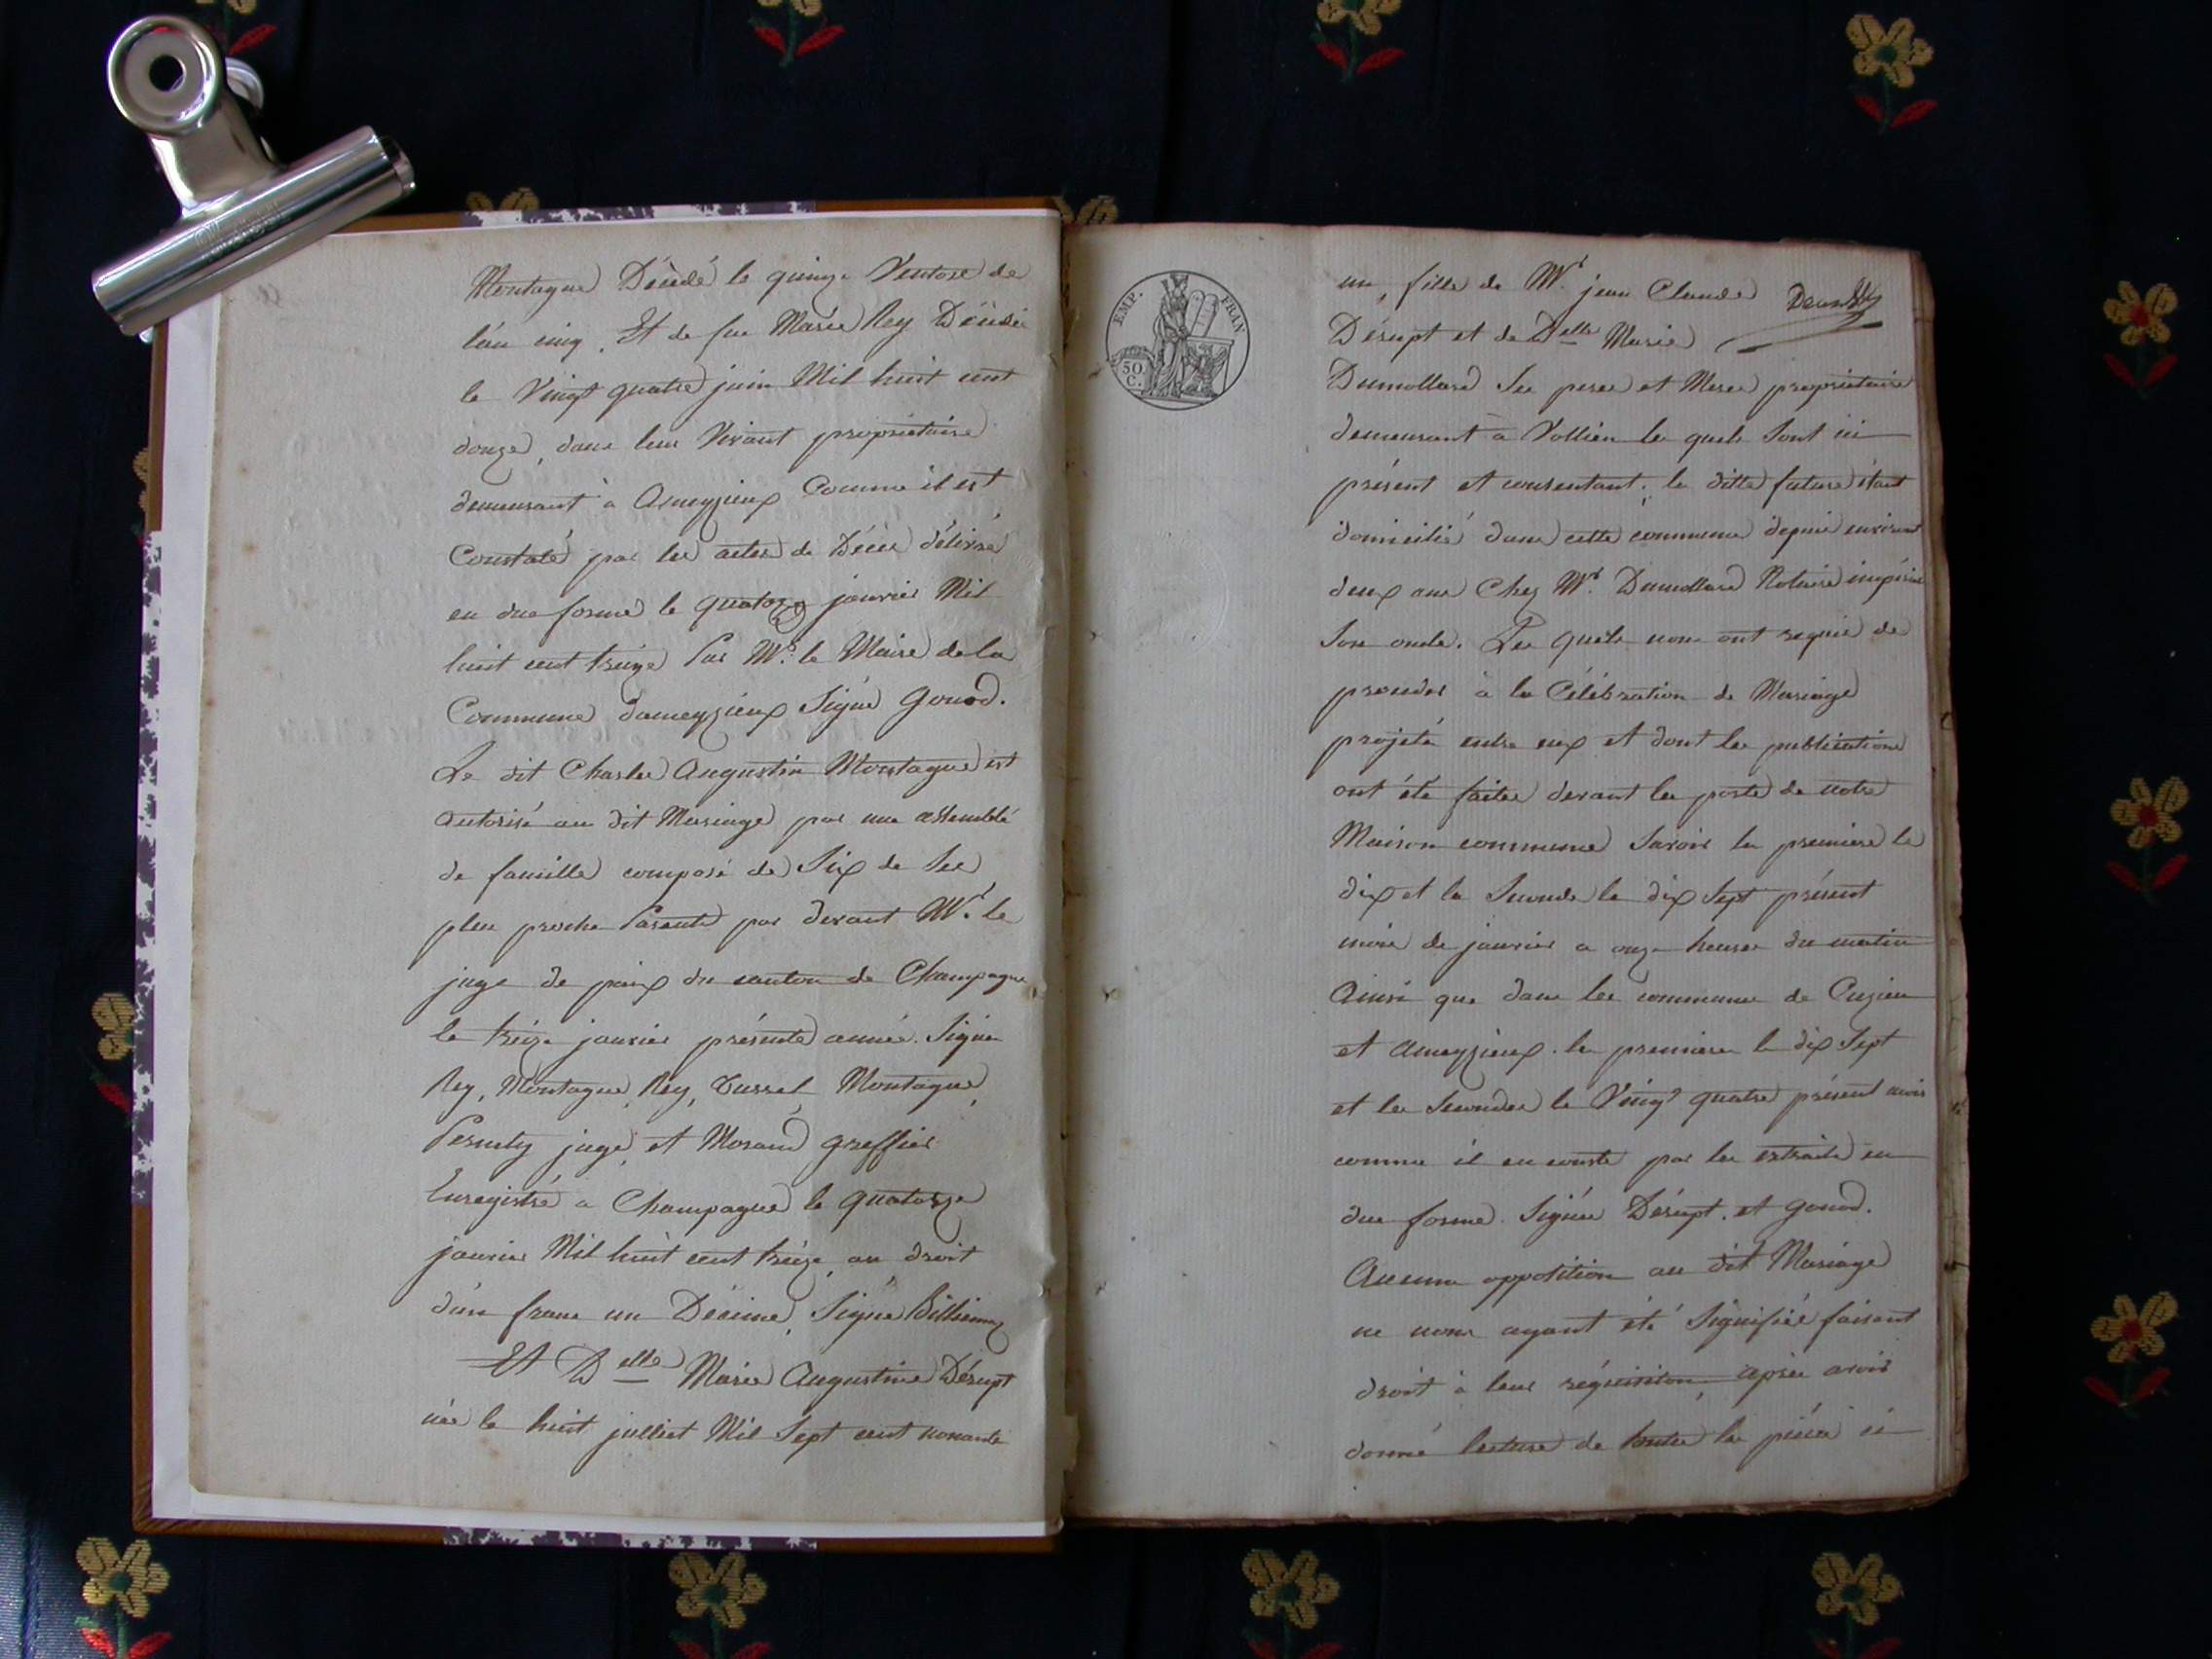 Montagne Décédé le quinze Ventose de
l'an cinq. Et de feu Marie Rey Décédée
le Vingt quatre juin Mil huit cent
douze, dans leur Vivant propriétaire
demeurant à Ameyzieux Comme il est
Constaté par les actes de Décès délivré
en due forme le quatorze janvier Mil
huit cent treize Par Mr. le Maire de la
Commune dameyzieux Signé Gonod.
Le dit Charles Augustin Montagne est
autorisé au dit Mariage par une assemblé
de famille composé de Six de Ses
plus proche Parents par devant Mr. le
juge de paix du canton de Champagne
le treize janvier présente année. Signé
Rey, Montagne, Rey, Montagne,
juge, et Morand greffier
Enregistré a Champagne le quatorze
janvier Mil huit cent treize au droit
d'un franc un Décime, Signé
Et Delle Marie Augustine Désript
née le huit julliet Mil Sept cent nonante
EMP. FRAN
50 C.
un, fille de Mr. jean Claude
Désript et de Delle Marie
Dumollard Ses pere et Mere propriétaire
demeurant à Vollien les quels Sont ici
présent et consentant; la ditte future étant
domicilié dans cette commune depuis environ
deux ans Chez Mr. Dumollard Notaire impérial
Son oncle. Les quels nous ont requis de
proceder à la Célébration de Mariage
projeté entre eux et dont les publications
ont été faites devant la porte de notre
Maison commune Savoir la premiere le
dix et la Seconde le dix Sept présent
mois de janvier a onze heures du matin
Ainsi que dans les communes de Cuzieu
et Ameyzieux. la premiere le dix Sept
et la Seconde le Vingt quatre présent mois
comme il en conste par les extraits en
due forme. Signés Désript. et Gonod.
Aucune opposition au dit Mariage
ne nous ayant été Signifiée faisant
droit à leur réquisition, après avoir
donné lecture de toutes les pièces ci